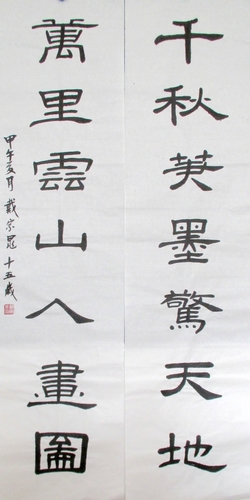 千秋筆墨驚天地
萬里雲山入畫圖
甲午夏月 戴宗昆 十五歲